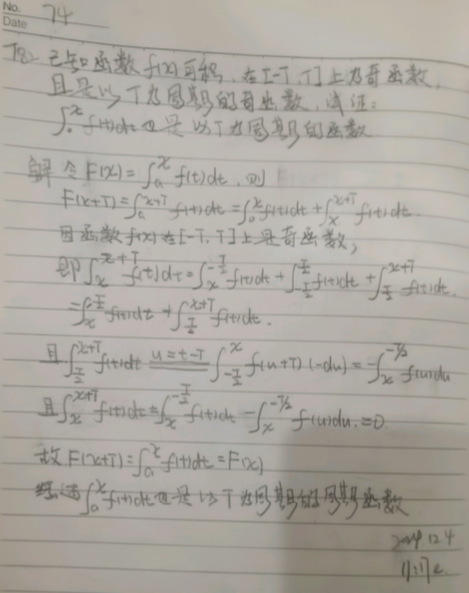 No. 74
Date
T8. 已知函数f(x)可积,在[-T,T]上为奇函数,
且是以T为周期的奇函数,试证:
∫ₐˣ f(t)dt也是以T为周期的函数
解 令F(x)=∫ₐˣ f(t)dt,则
F(x+T)=∫ₐˣ⁺ᵀ f(t)dt=∫ₐˣ f(t)dt+∫ₓˣ⁺ᵀ f(t)dt.
因函数f(x)在[-T,T]上是奇函数,
即∫ₓ^{x+T} f(t)dt=∫ₓ^{-T/2} f(t)dt+∫_{-T/2}^{T/2} f(t)dt+∫_{T/2}^{x+T} f(t)dt.
=∫ₓ^{-T/2} f(t)dt+∫_{T/2}^{x+T} f(t)dt.
且∫_{T/2}^{x+T} f(t)dt u=t-T ∫_{-T/2}^{x} f(u+T)(-du)=-∫ₓ^{-T/2} f(u)du
且∫ₓ^{x+T} f(t)dt=∫ₓ^{-T/2} f(t)dt-∫ₓ^{-T/2} f(u)du.=0.
故F(x+T)=∫ₐˣ f(t)dt=F(x)
∫ₐˣ f(t)dt也是以T为周期的周期函数
12.4